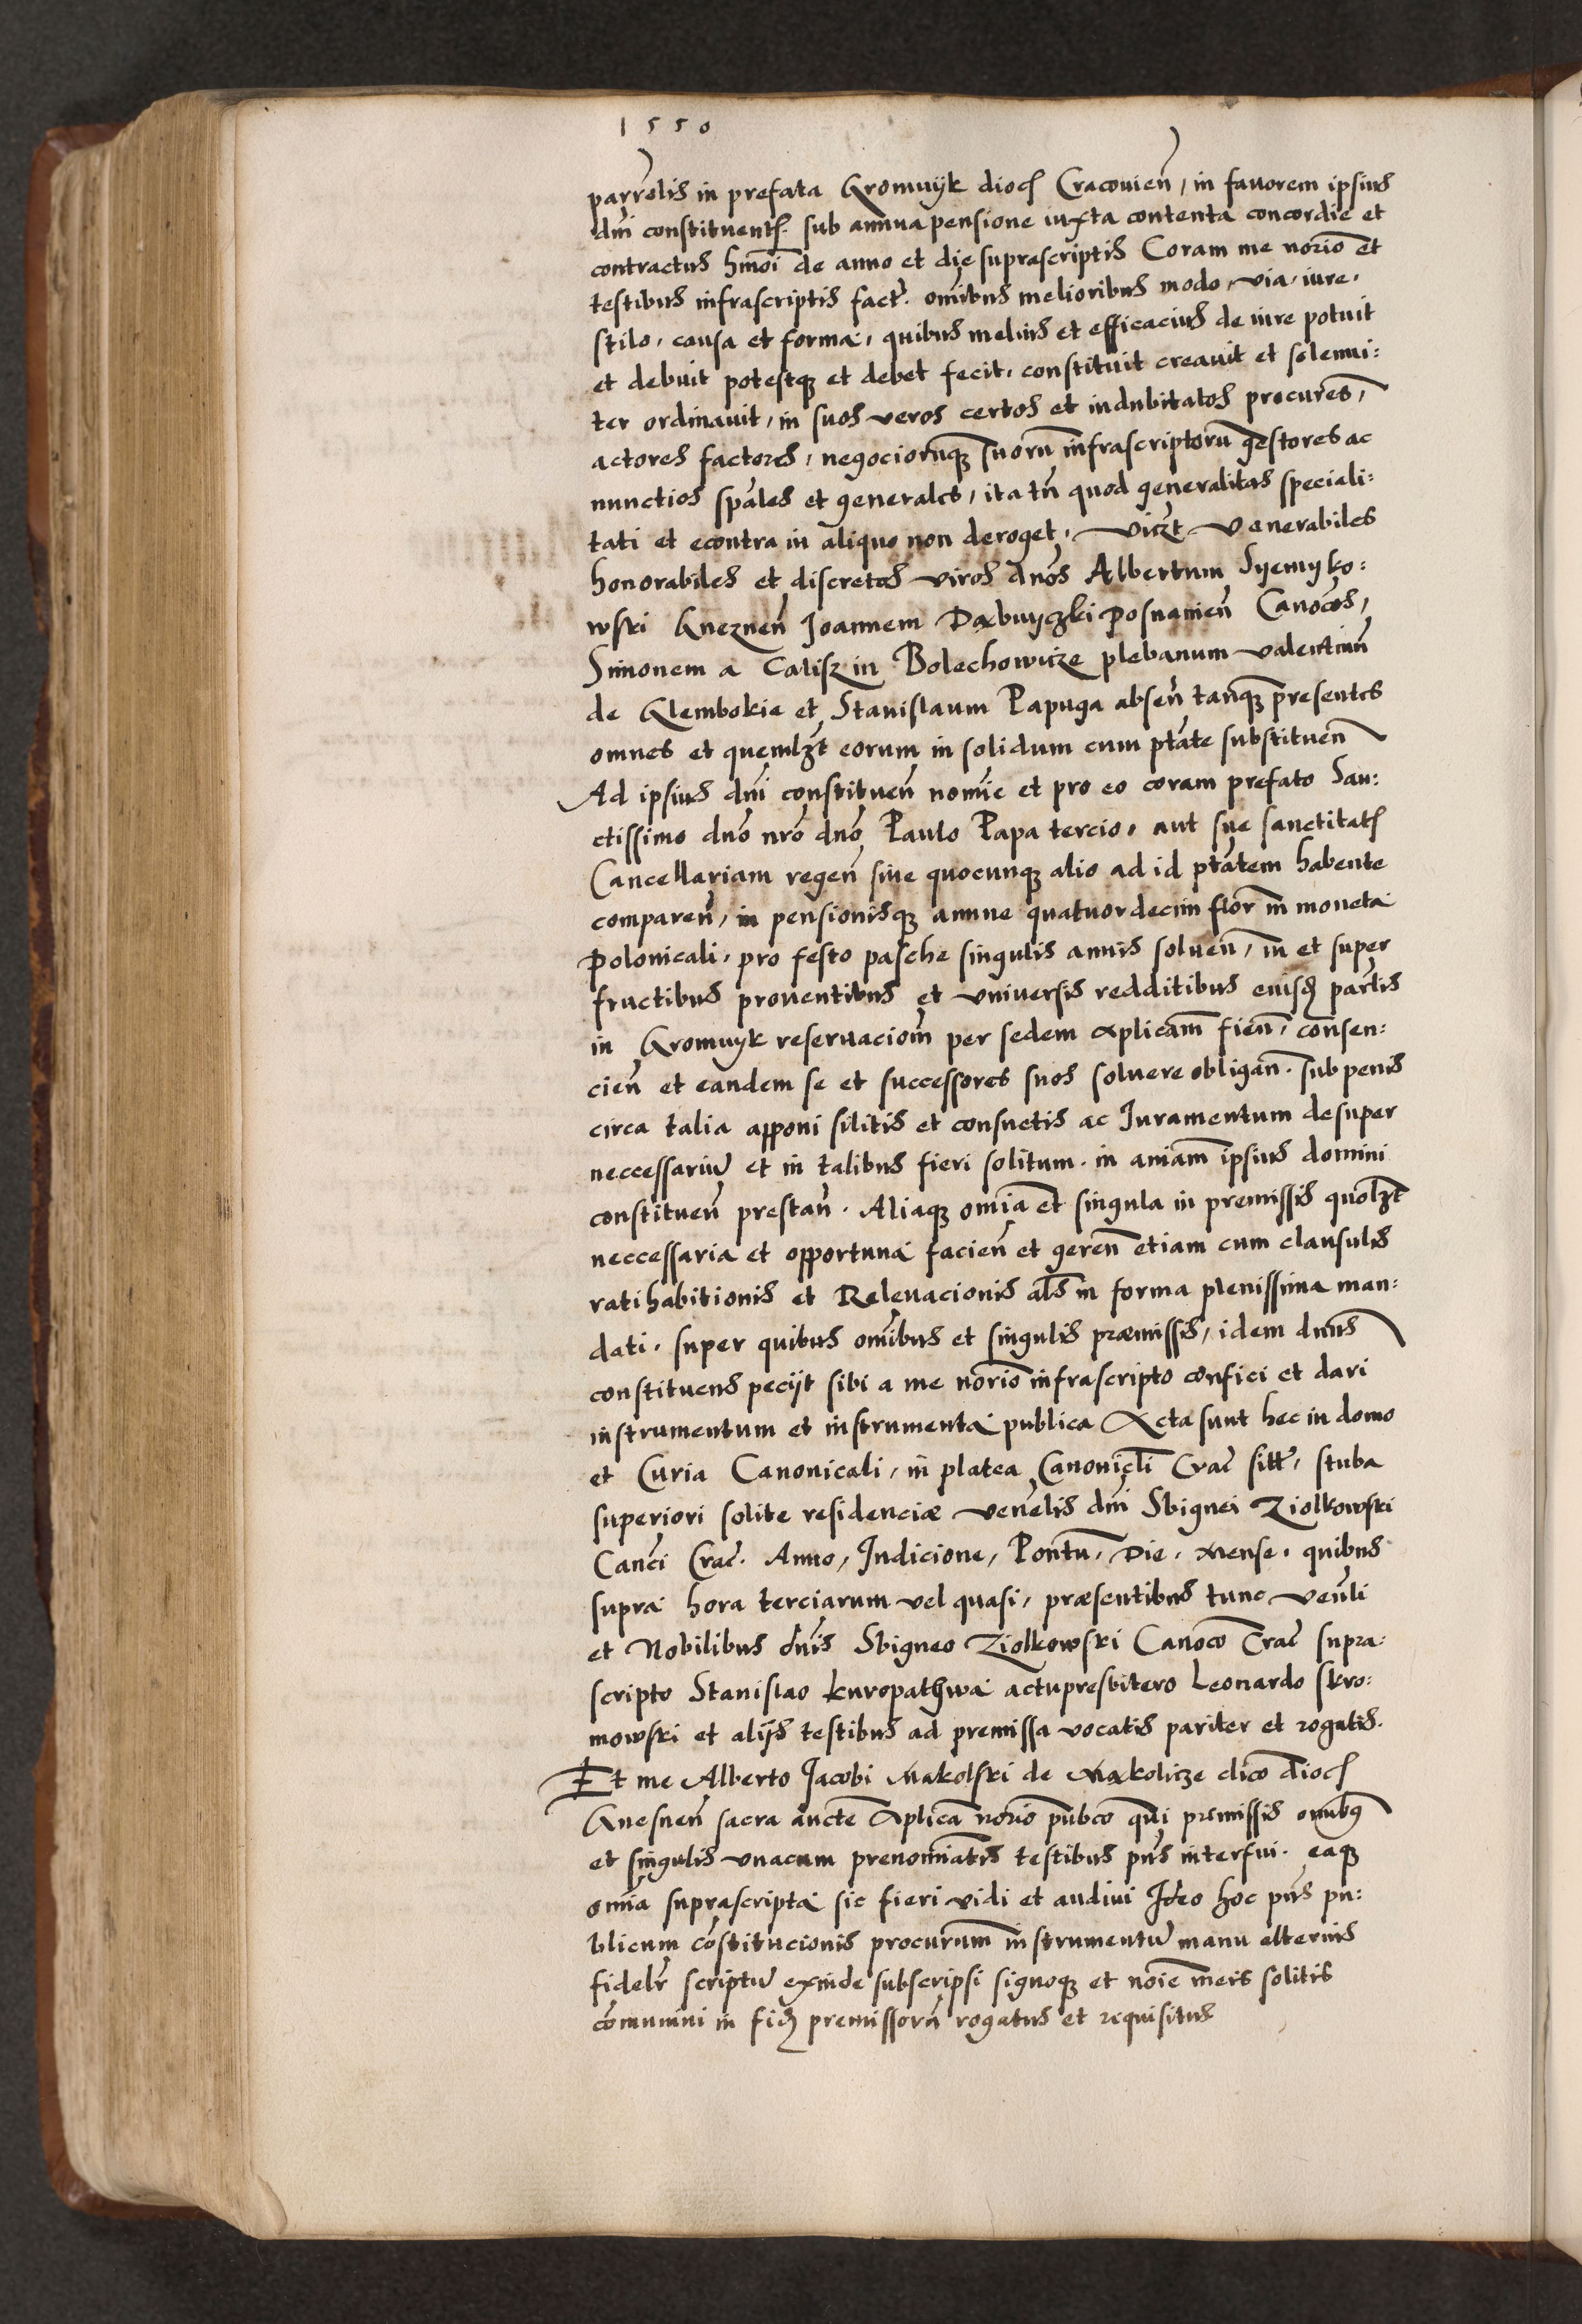 1550
parrelis in prefata Gromnyk dioc Cracovien, in favorem ipsius
dni constituent. sub annua pensione iuxta contenta concordie et
contractus hmoi de anno et die suprascriptis Coram me norio et
testibus infrascriptis fact. omibus melioribus modo, via, iure,
stilo, causa et forma, quibus melius et efficacius de iure potuit
et debuit potestq et debet fecit, constituit creavit et solenni:
ter ordinavit, in suos veros certos et indubitatos procures,
actores factores, negociorumq suoru infrascriptoru gestores ac
nunctios spales et generales, ita tn quod generalitas speciali:
tati et econtra in aliquo non deroget, viczt Venerabiles
honorabiles et discretos viros dnos Albertum Syemyko:
wski Gneznen Joannem Dxbuyczki Posnanien Canocos,
Simonem a Calisz in Bolechowicze plebanum Valentinu
de Glembokie et Stanislaum Papuga absen tanq presentes
omnes et quemlzt eorum in solidum cum ptate substituen
Ad ipsius dni constituen nomie et pro eo coram prefato San:
ctissimo dno nro dno Paulo Papa tercio, aut sue sanctitatis
Cancellariam regen sive quocunq alio ad id ptatem habente
comparen, in pensionisq annue quatuordecim flor in moneta
Polonicali, pro festo pasche singulis annis solven, in et super
fructibus proventibus et universis redditibus eiusd parlis
in Gromnyk reservaciom per sedem aplicam fien, consen:
cien et eandem se et successores suos solvere obligan. sub penis
circa talia apponi silitis et consuetis ac Iuramentum desuper
neccessariu et in talibus fieri solitum. in aniam ipsius domini
constituen prestan. Aliaq omia et singula in premissis quolzt
neccessaria et opportuna facien et geren etiam cum clausulis
ratihabitionis et Relevacionis als in forma plenissima man:
dati. super quibus omibus et singulis præmissis, idem dnus
constituens peciit sibi a me norio infrascripto confici et dari
instrumentum et instrumenta publica Acta sunt hec in domo
et Curia Canonicali, in platea Canonicli Crac sitt, stuba
superiori solite residenciæ venelis dni Sbignei Ziolkowski
Canci Crac. Anno, Indicione, Pontu, Die, Mense, quibus
supra hora terciarum vel quasi, præsentibus tunc venli
et Nobilibus dnis Sbigneo Ziolkowski Canoco Crac supra:
scripto Stanislao kuropathwa actupresbitero Leonardo skro:
mowski et alijs testibus ad premissa vocatis pariter et rogatis.
Et me Alberto Jacobi Makolski de Makolicze clico dioc
Gnesnen sacra aucte Aplica norio pubco qui premissis omibus
et singulis unacum prenominatis testibus pns interfui. eaq
omia suprascripta sic fieri vidi et audivi Ideo hoc pns pu:
blicum constitucionis procurum instrumentu manu alterius
fidelr scriptu exinde subscripsi signoq et noie meis solitis
comunivi in fid premissoru rogatus et requisitus